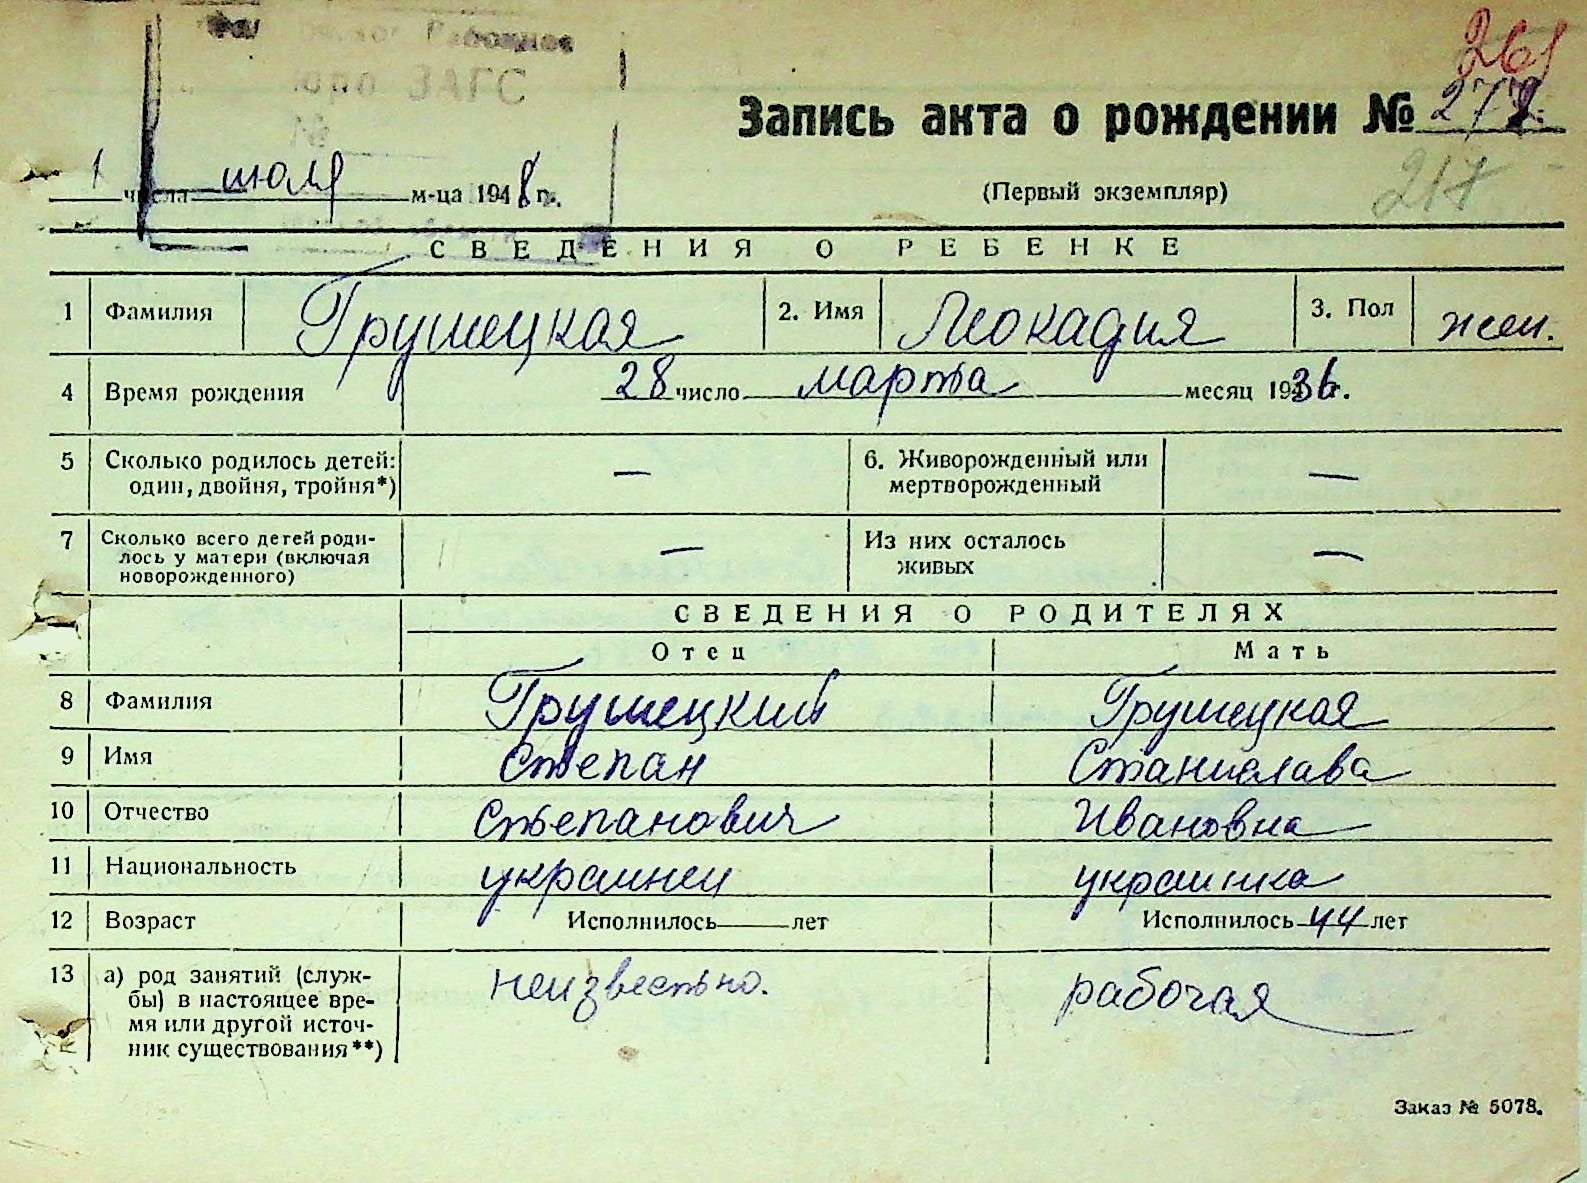 Районное
бюро ЗАГС
№
261
Запись акта о рождении № 272
1 числа июля м-ца 1948 г.
(Первый экземпляр)
217
СВЕДЕНИЯ О РЕБЕНКЕ
1 Фамилия Грушецкая 2. Имя Леокадия 3. Пол жен.
4 Время рождения 28 число марта месяц 1936 г.
5 Сколько родилось детей: — 6. Живорожденный или —
один, двойня, тройня*) мертворожденный
7 Сколько всего детей роди- — Из них осталось —
лось у матери (включая живых
новорожденного)
СВЕДЕНИЯ О РОДИТЕЛЯХ
Отец Мать
8 Фамилия Грушецкий Грушецкая
9 Имя Степан Станислава
10 Отчество Степанович Ивановна
11 Национальность украинец украинка
12 Возраст Исполнилось лет Исполнилось 44 лет
13 а) род занятий (служ- неизвестно. рабочая
бы) в настоящее вре-
мя или другой источ-
ник существования**)
Заказ № 5078.